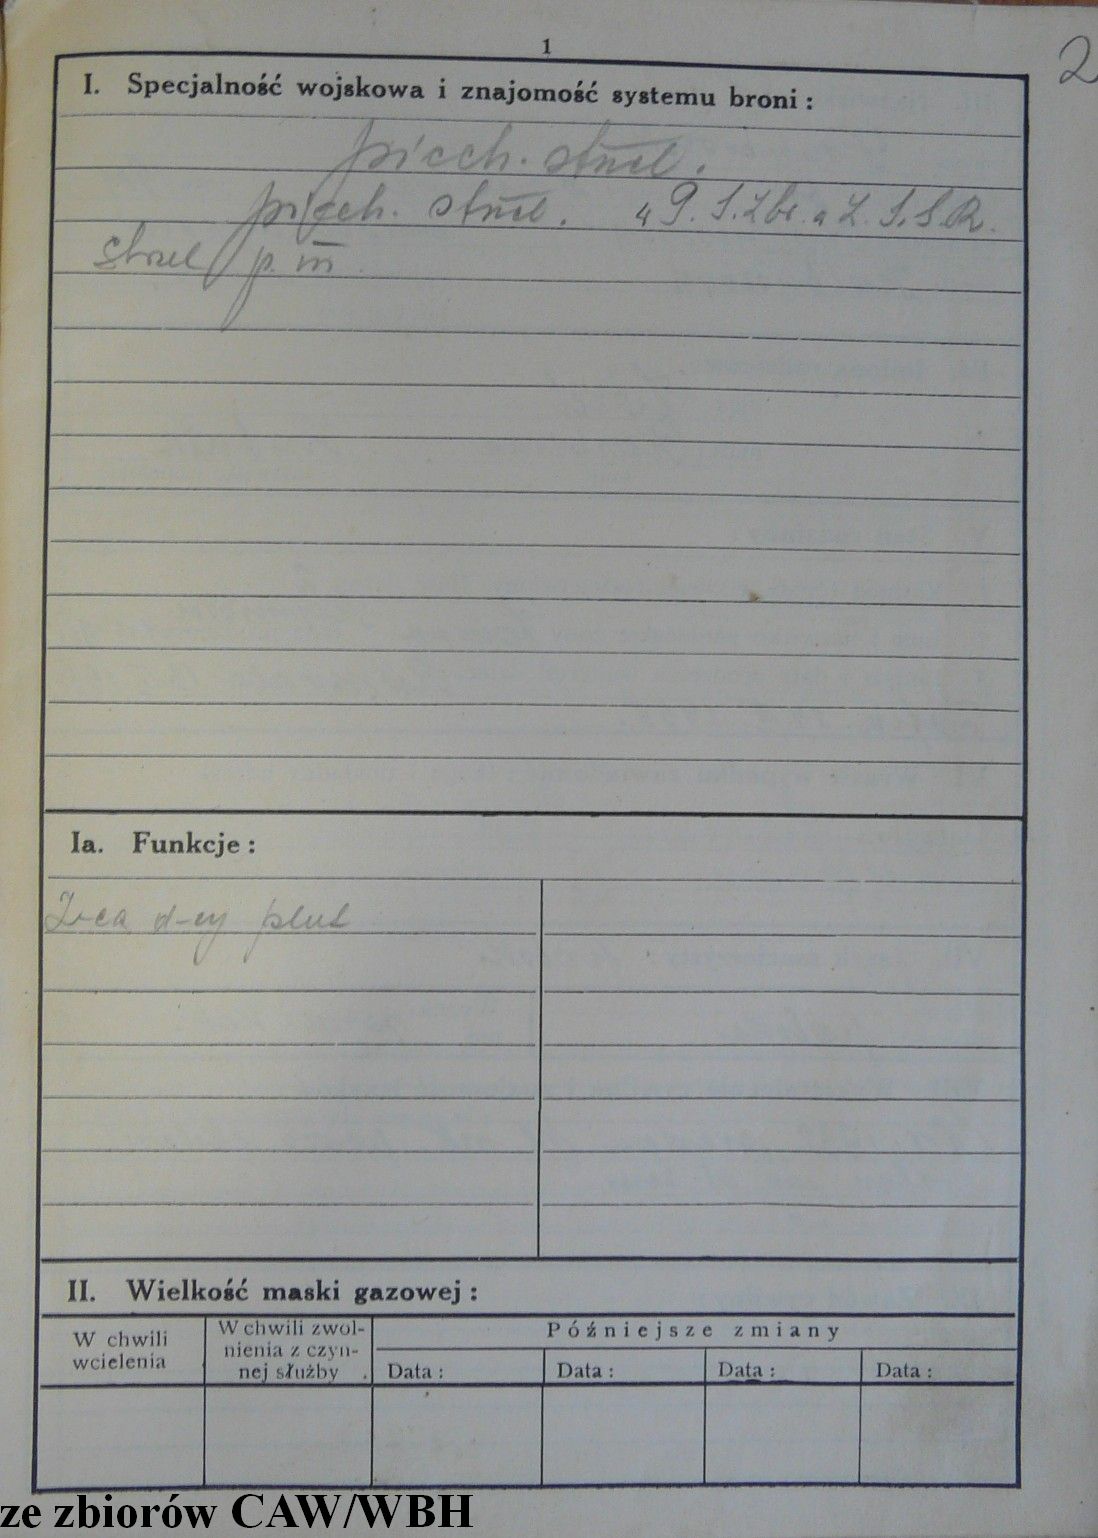 1
2
I. Specjalność wojskowa i znajomość systemu broni :
piech. strzel.
piech. strzel.
strzel p. III
Ia. Funkcje :
Z-ca d-cy plut
II. Wielkość maski gazowej :
W chwili wcielenia
W chwili zwol-
nienia z czyn-
nej służby
Późniejsze zmiany
Data : Data : Data : Data :
ze zbiorów CAW/WBH